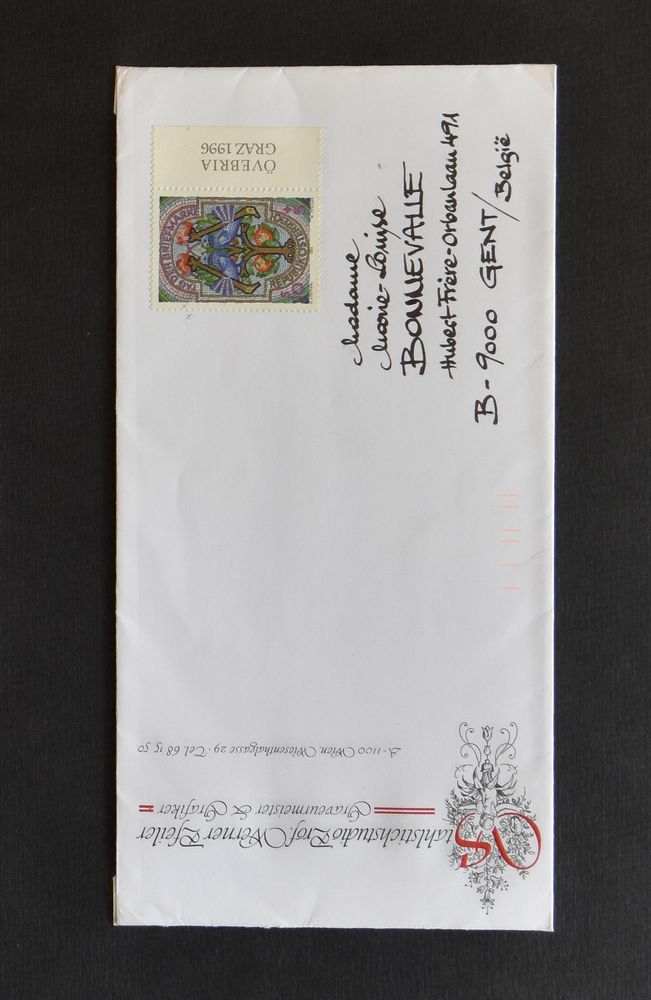 Stahlstichstudio Prof. Werner Pfeiler
Graveurmeister & Grafiker
A-1100 Wien, Wiesenthalgasse 29 · Tel. 68 15 50
ÖVEBRIA
GRAZ 1996
TAG DER BRIEFMARKE
Madame
Marie-Louise
BONNEVALLE
Hubert Frère-Orbanlaan 491
B-9000 GENT/België